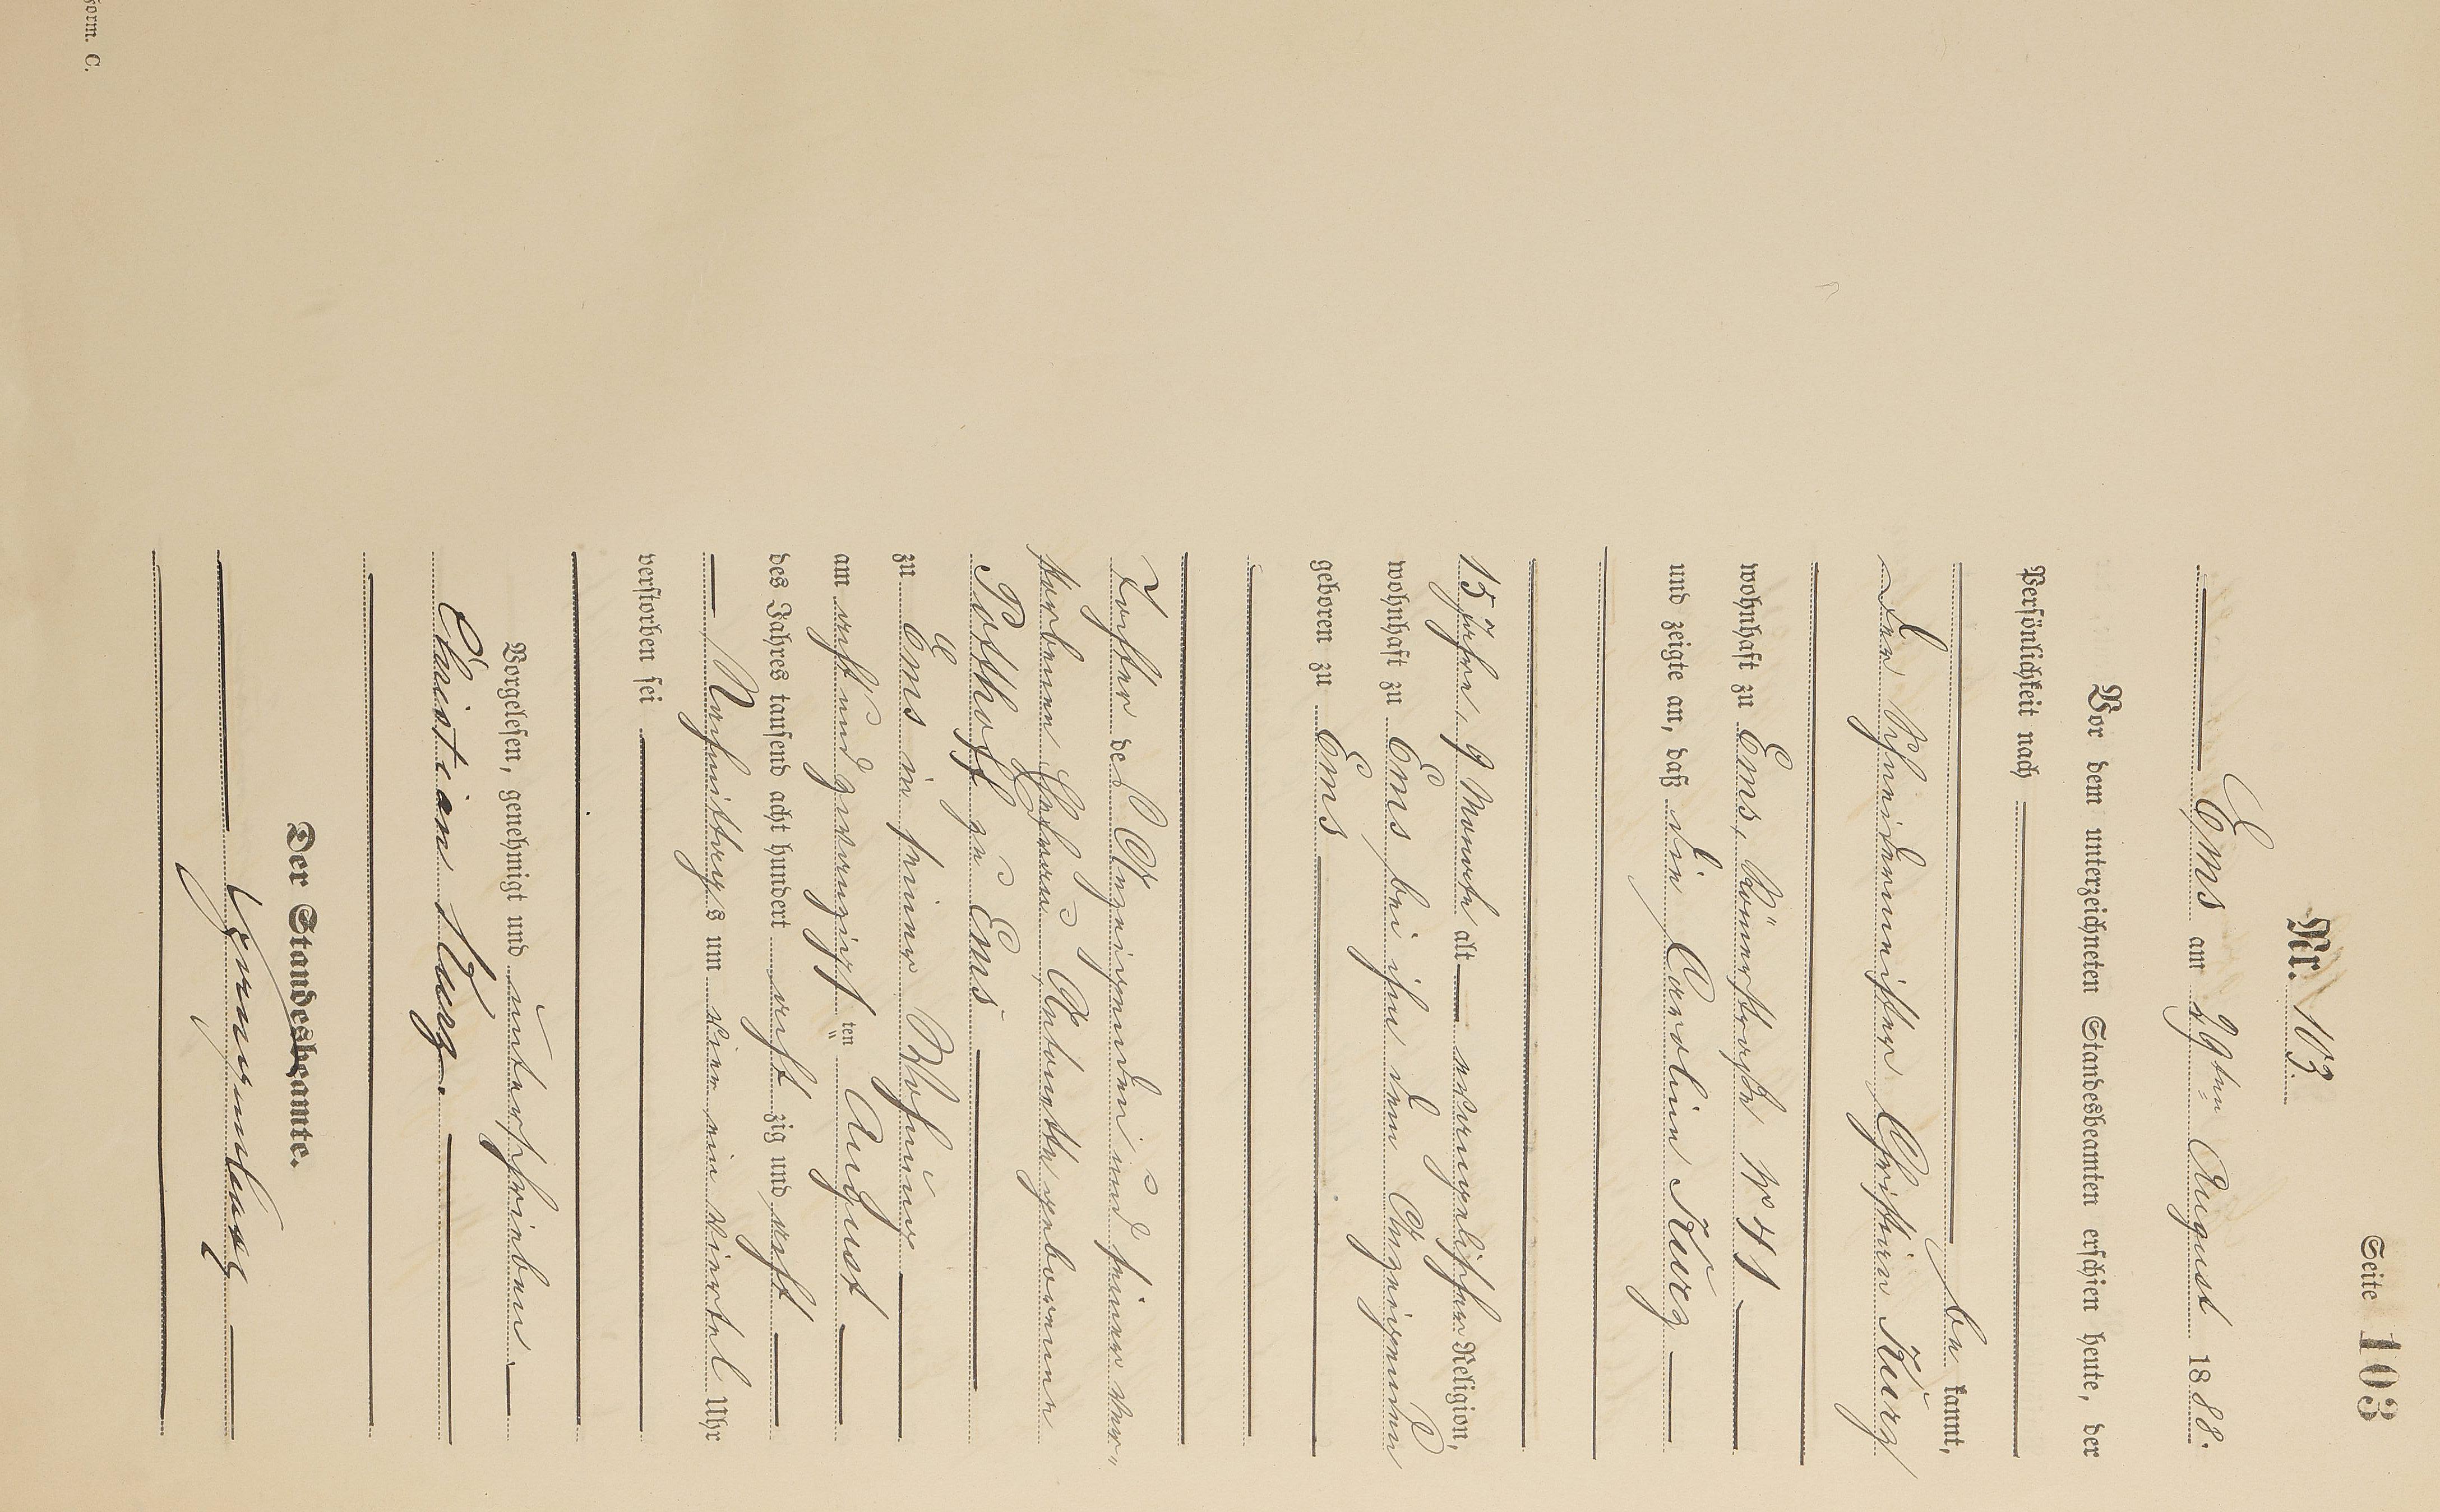 Seite 103
Nr. 103.
Ems am 29ten August 1888.
Vor dem unterzeichneten Standesbeamten erschien heute, der
Persönlichkeit nach
be kannt,
der Schreinermeister Christian Kurz
wohnhaft zu Ems, Römerstraße No 41
und zeigte an, daß die Carolin Kurz
15 Jahre, 9 Monate alt evangelischer Religion,
wohnhaft zu Ems bei ihm dem Anzeigenden
geboren zu Ems
Tochter des Anzeigenden und seiner ver-
storbenen Ehefrau Antonette geborenen
Potthoff zu Ems
zu Ems in seiner Wohnung
am acht und zwanzigsten August
des Jahres tausend acht hundert acht zig und acht
Nachmittags um vier ein viertel Uhr
verstorben sei
Vorgelesen, genehmigt und unterschrieben.
Christian Kurz.
Der Standesbeamte.
Form. C.